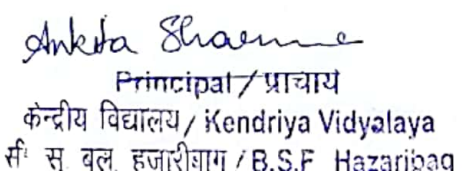 Ankita Sharma
Principal / प्राचार्य
केन्द्रीय विद्यालय / Kendriya Vidyalaya
सी. सु. बल, हजारीबाग / B.S.F Hazaribag